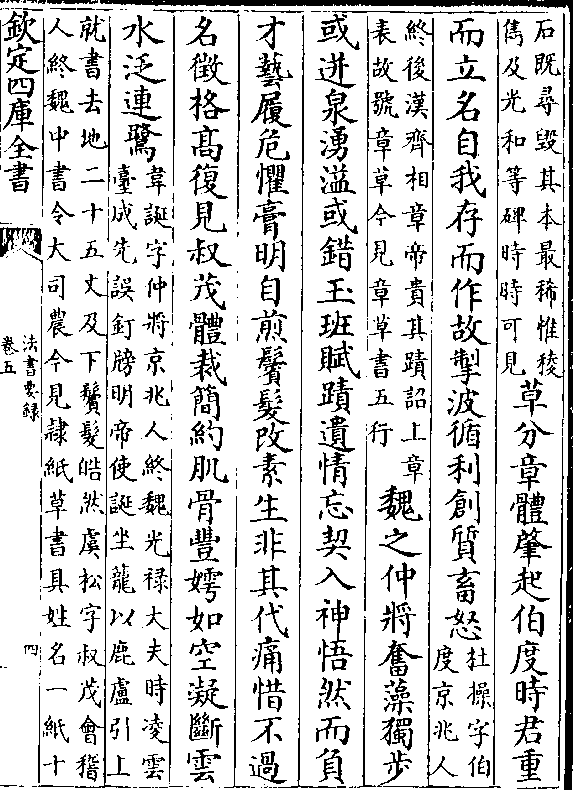 石既尋毀其本最稀惟稜
雋及光和等碑時時可見
草分章體肇起伯度時君重
而立名自我存而作故掣波循利創質畜怒
杜操字伯
度京兆人
終後漢齊相章帝貴其蹟詔上章
表故號章草今見章草書五行
魏之仲將奮藻獨步
或迸泉湧溢或錯玉班賦蹟遺情忘契入神悟然而負
才藝履危懼膏明自煎鬢髮改素生非其代痛惜不過
名徵格高復見叔茂體裁簡約肌骨豐嫮如空凝斷雲
水泛連鷺
韋誕字仲將京兆人終魏光祿大夫時凌雲
臺成先誤釘牓明帝使誕坐籠以鹿盧引上
就書去地二十五丈及下鬢髮皓然虞松字叔茂會稽
人終魏中書令大司農今見隷紙草書具姓名一紙十
欽定四庫全書
法書要録
卷五
四